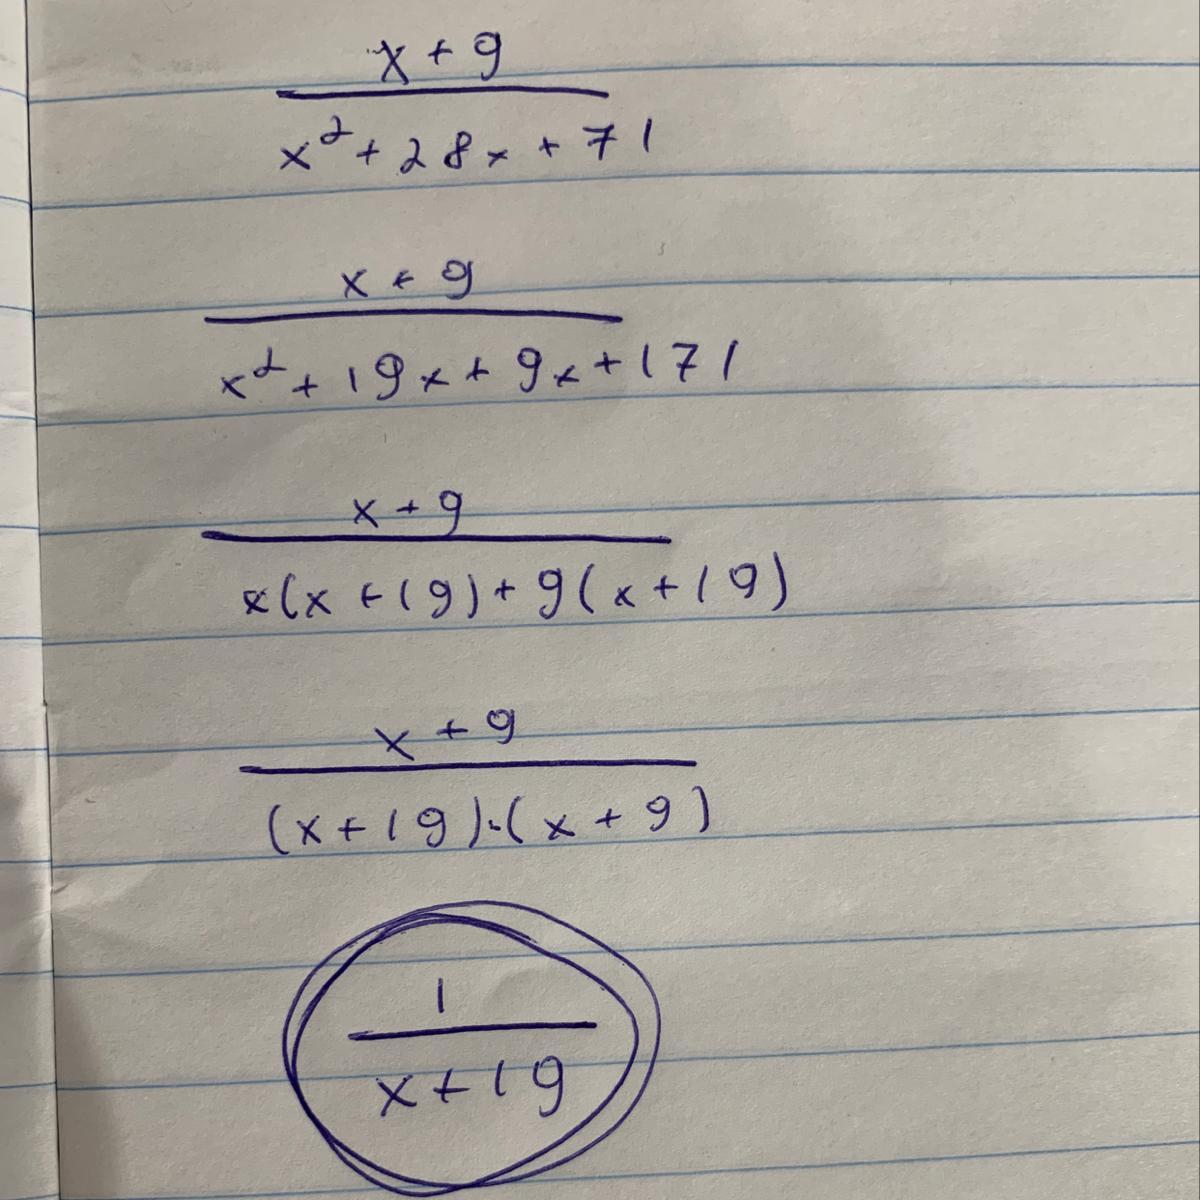 x + 9
x² + 28x + 71
x + 9
x² + 19x + 9x + 171
x + 9
x(x + 19) + 9(x + 19)
x + 9
(x + 19)·(x + 9)
1
x + 19